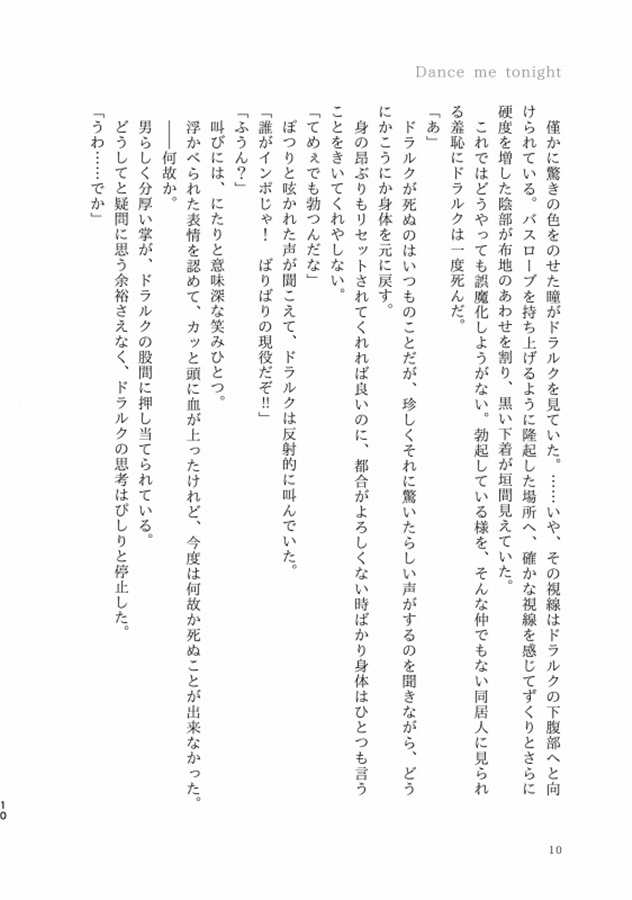 Dance me tonight
　僅かに驚きの色をのせた瞳がドラルクを見ていた。……いや、その視線はドラルクの下腹部へと向
けられている。バスローブを持ち上げるように隆起した場所へ、確かな視線を感じてずくりとさらに
硬度を増した陰部が布地のあわせを割り、黒い下着が垣間見えていた。
　これではどうやっても誤魔化しようがない。勃起している様を、そんな仲でもない同居人に見られ
る羞恥にドラルクは一度死んだ。
「あ」
　ドラルクが死ぬのはいつものことだが、珍しくそれに驚いたらしい声がするのを聞きながら、どう
にかこうにか身体を元に戻す。
　身の昂ぶりもリセットされてくれれば良いのに、都合がよろしくない時ばかり身体はひとつも言う
ことをきいてくれやしない。
「てめぇでも勃つんだな」
　ぽつりと呟かれた声が聞こえて、ドラルクは反射的に叫んでいた。
「誰がインポじゃ！　ばりばりの現役だぞ‼」
「ふうん？」
　叫びには、にたりと意味深な笑みひとつ。
　浮かべられた表情を認めて、カッと頭に血が上ったけれど、今度は何故か死ぬことが出来なかった。
　――何故か。
　男らしく分厚い掌が、ドラルクの股間に押し当てられている。
　どうしてと疑問に思う余裕さえなく、ドラルクの思考はぴしりと停止した。
「うわ……でか」
10
10